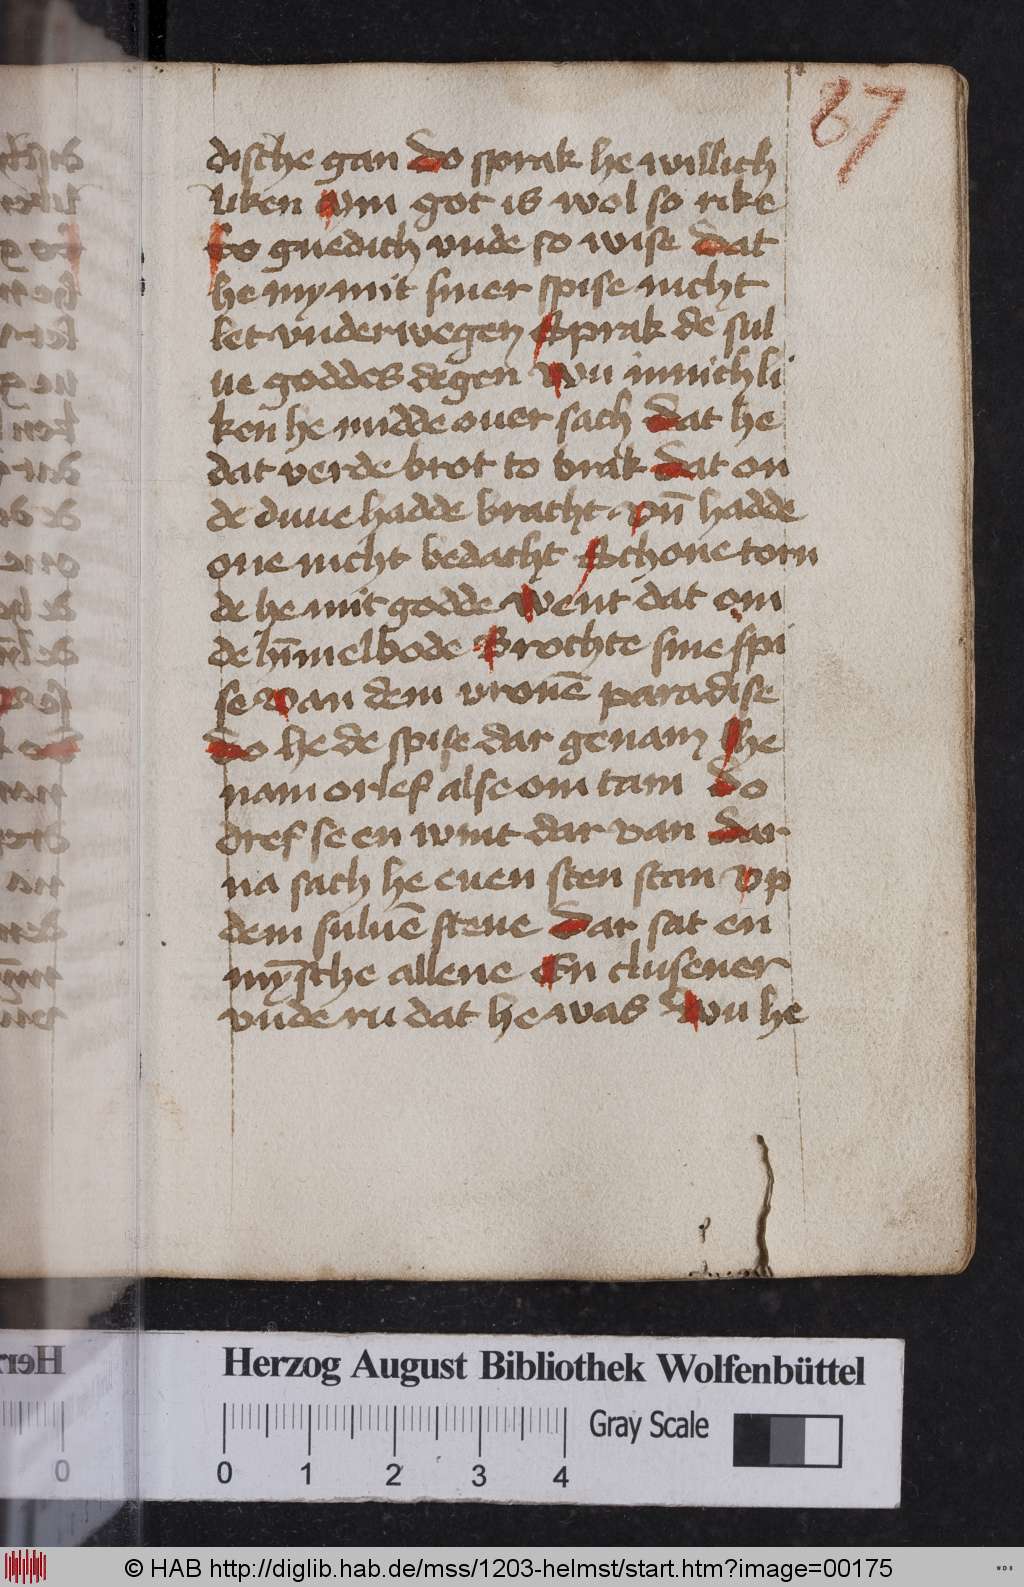 87
dische gan do sprak he willich
liken wm got is wol so rike
so gnedich vnde so wise dat
he my mit siner spise nicht
let vnderwegen Sprak de sul
ue goddes degen wu innichli
ken he midde ouer sach dat he
dat verde brot to brak dat on
de duue hadde bracht vn̄ hadde
one nicht bedacht Schone torn
de he mit godde went dat om
de hīmelbode Brochte sine spi
se van dem vronē paradise
do he de spise dar genam he
nam orlef alse om tam do
dref se en wint dar van dar
na sach he euen sten stan vp
dem suluē stene dar sat en
mȳsche allene En clusener
vnde ru dat he was wu he
Herzog August Bibliothek Wolfenbüttel
0 1 2 3 4 Gray Scale
© HAB http://diglib.hab.de/mss/1203-helmst/start.htm?image=00175